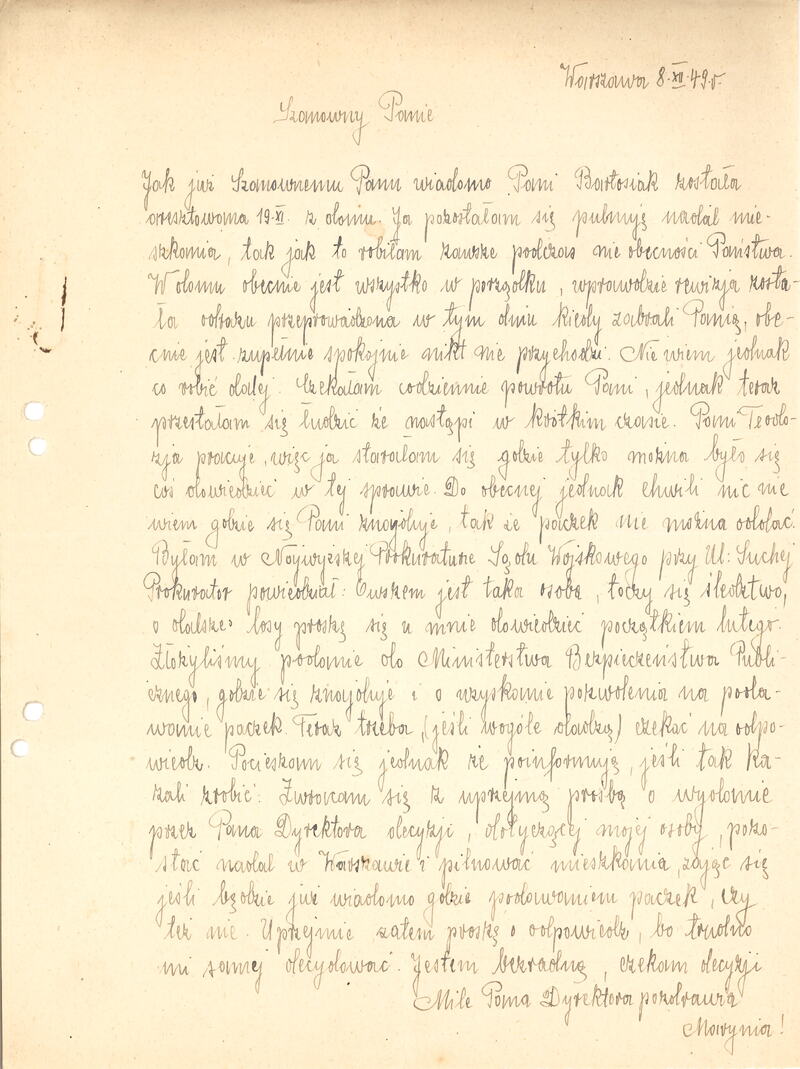 Warszawa 8.XII.49r.
Szanowny Panie
Jak już Szanownemu Panu wiadomo Pani Bartosiak została
aresztowana 19.XI. z domu. Ja pozostałam się pilnuję nadal mie-
szkania, tak jak to robiłam zawsze podczas nie obecności Państwa.
W domu obecnie jest wszystko w porządku, wprawdzie rewizja zosta-
ła odrazu przeprowadzona w tym dniu kiedy zabrali Panią, obe-
cnie jest zupełnie spokojnie nikt nie przychodzi. Nie wiem jednak
co robić dalej. Czekałam codziennie powrotu Pani, jednak teraz
przestałam się łudzić że nastąpi w krótkim czasie. Pani Teodo-
zja pracuje, więc ja starałam się gdzie tylko można było się
coś dowiedzieć w tej sprawie. Do obecnej jednak chwili nic nie
wiem gdzie się Pani znajduje, tak że paczek nie można oddać.
Byłam w Najwyższej Prokuraturze Sądu Wojskowego przy Ul: Suchej
Prokurator powiedział: Owszem jest taka osoba, toczy się śledztwo,
o dalsze losy proszę się u mnie dowiedzieć początkiem lutego.
Złożyliśmy podanie do Ministerstwa Bezpieczeństwa Publi-
cznego, gdzie się znajduje i o uzyskanie pozwolenia na poda-
wanie paczek. Teraz trzeba, (jeśli wogóle dadzą) czekać na odpo-
wiedz. Pocieszam się jednak że poinformują, jeśli tak ka-
zali zrobić. Zwracam się z uprzejmą prośbą o wydanie
przez Pana Dyrektora decyzji, dotyczącej mojej osoby, pozo-
stać nadal w Warszawie i pilnować mieszkania, zająć się
jeśli będzie już wiadomo gdzie podawaniem paczek, czy
też nie. Uprzejmie zatem proszę o odpowiedz, bo trudno
mi samej decydować. Jestem bezradną, czekam decyzji
Miłe Pana Dyrektora pozdrawia
Marynia!